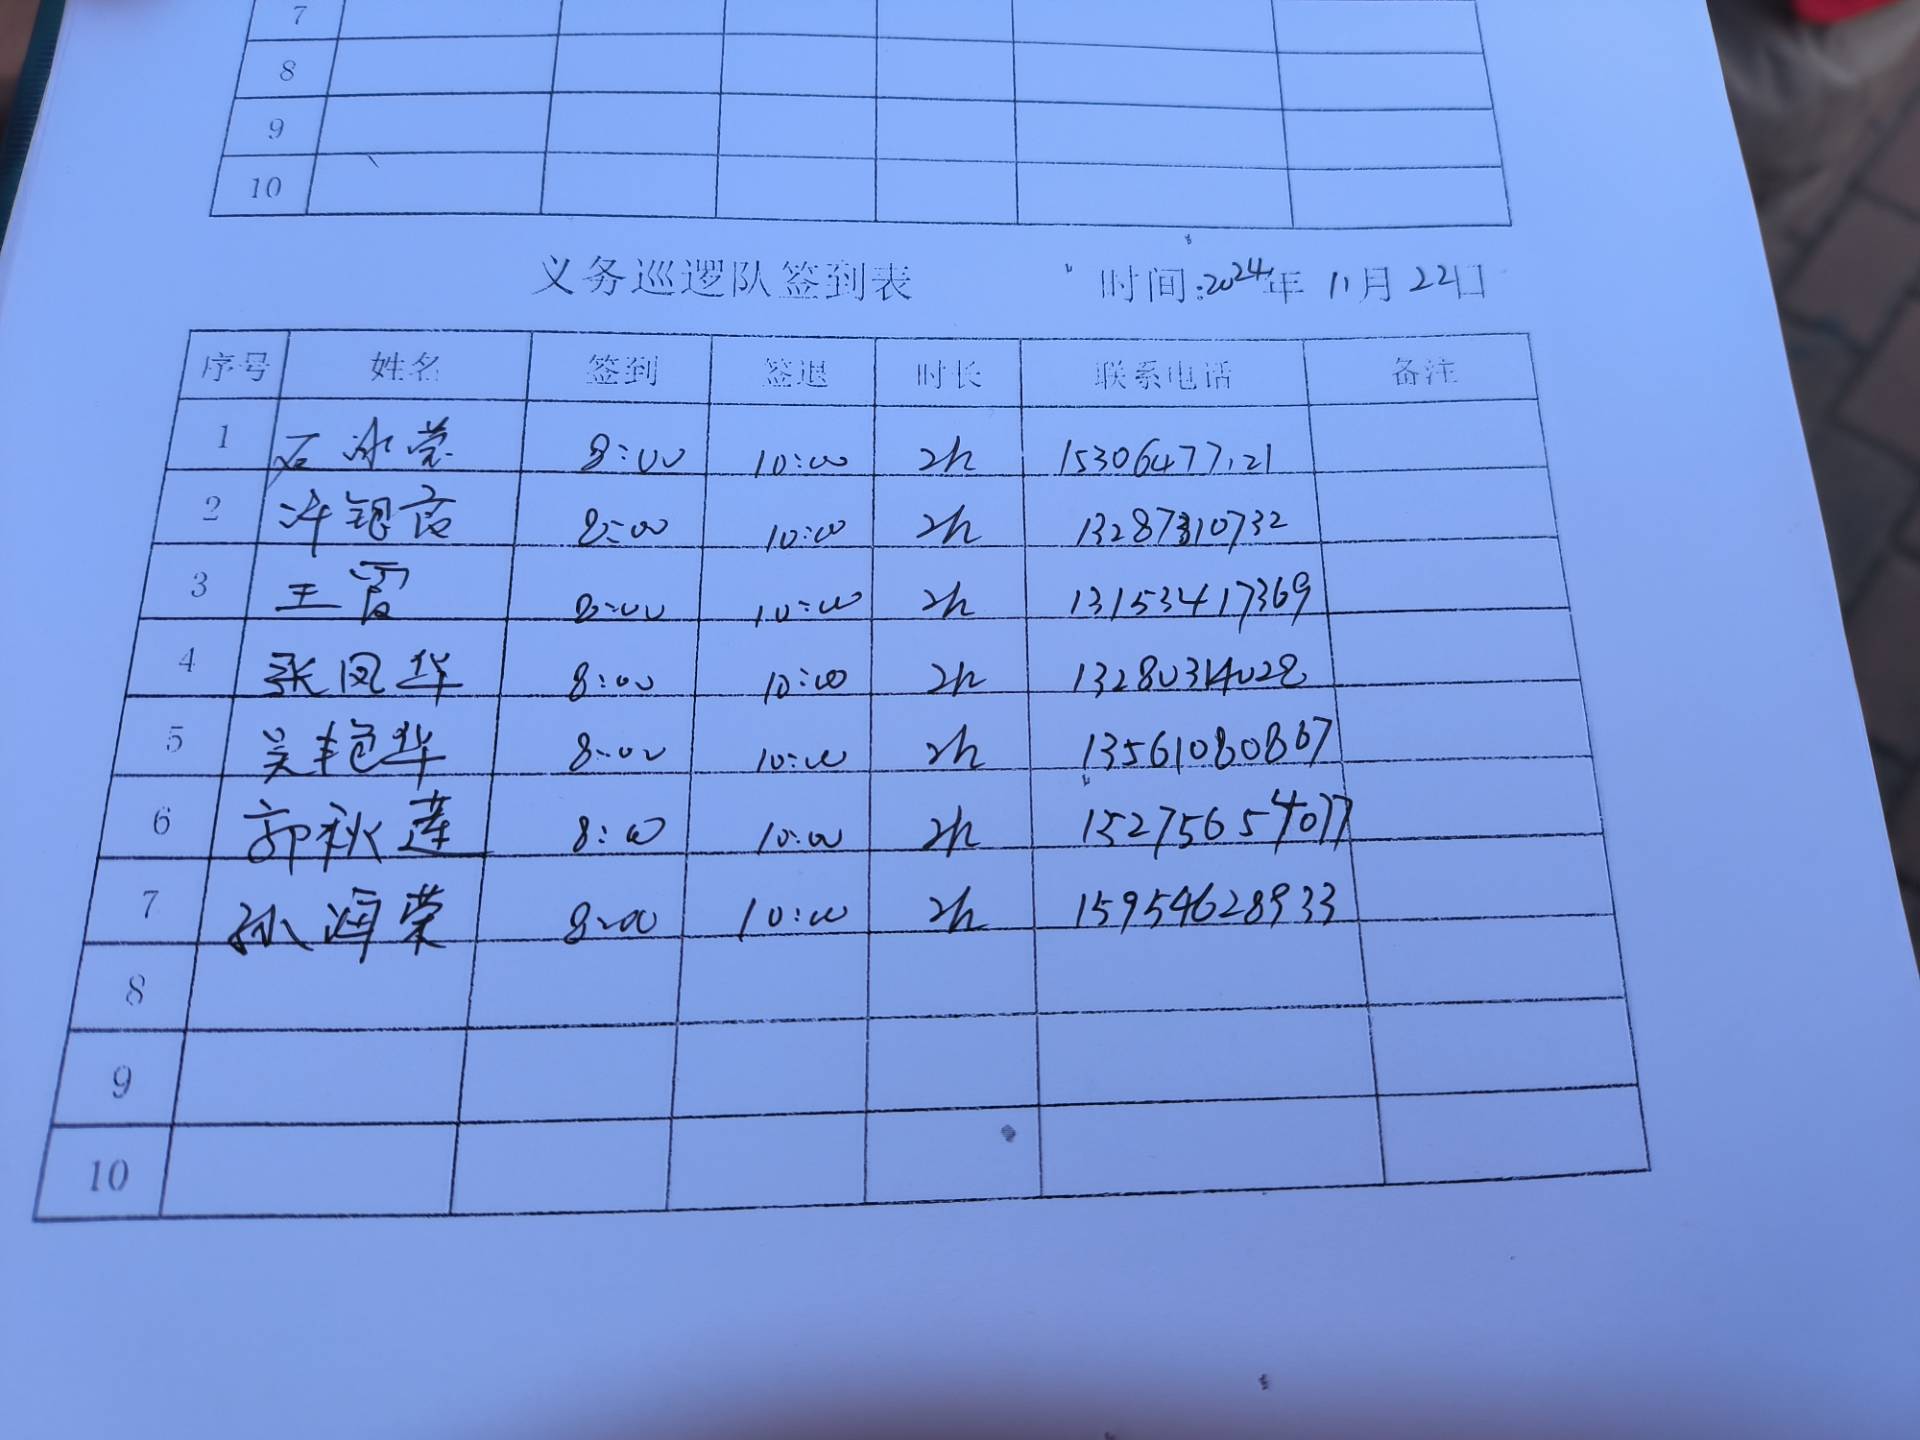 7
8
9
10
义务巡逻队签到表 时间:2024年 11月 22日
序号 姓名 签到 签退 时长 联系电话 备注
1 石冰莹 8:00 10:00 2h 15306477121
2 许银富 8:00 10:00 2h 13287310732
3 王霞 8:00 10:00 2h 13153417369
4 张凤华 8:00 10:00 2h 13280314028
5 吴艳华 8:00 10:00 2h 13561080867
6 郭秋莲 8:00 10:00 2h 15275654077
7 孙海荣 8:00 10:00 2h 15954628933
8
9
10